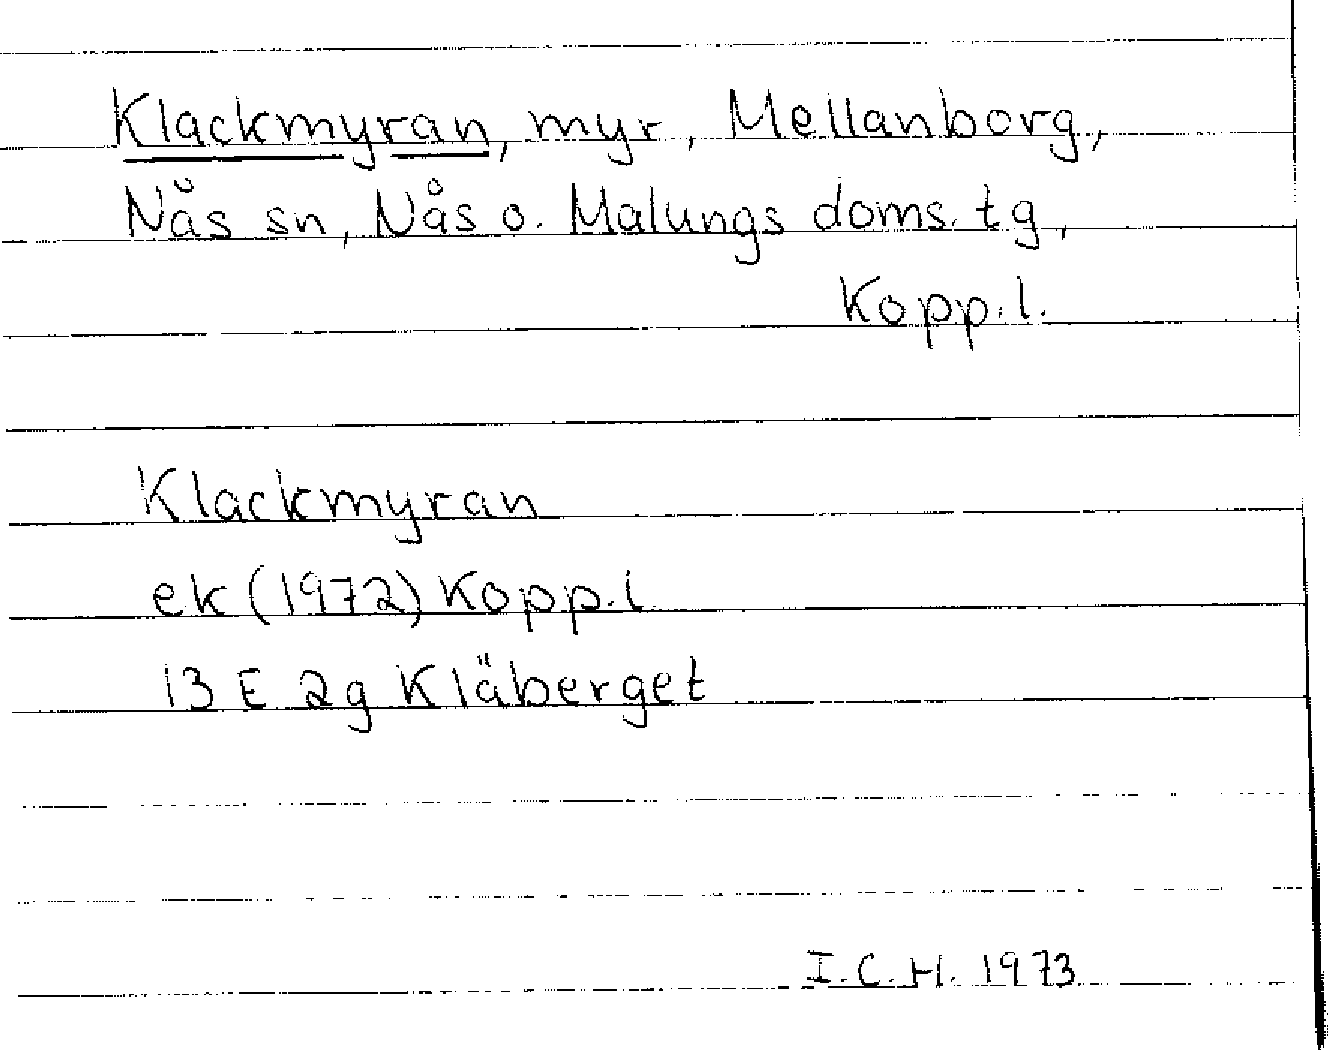 Klackmyran, myr, Mellanborg,
Nås sn, Nås o. Malungs doms. tg,
Kopp. l.
Klackmyran
ek (1972) Kopp. l
13 E 2g Kläberget
I. C. H. 1973